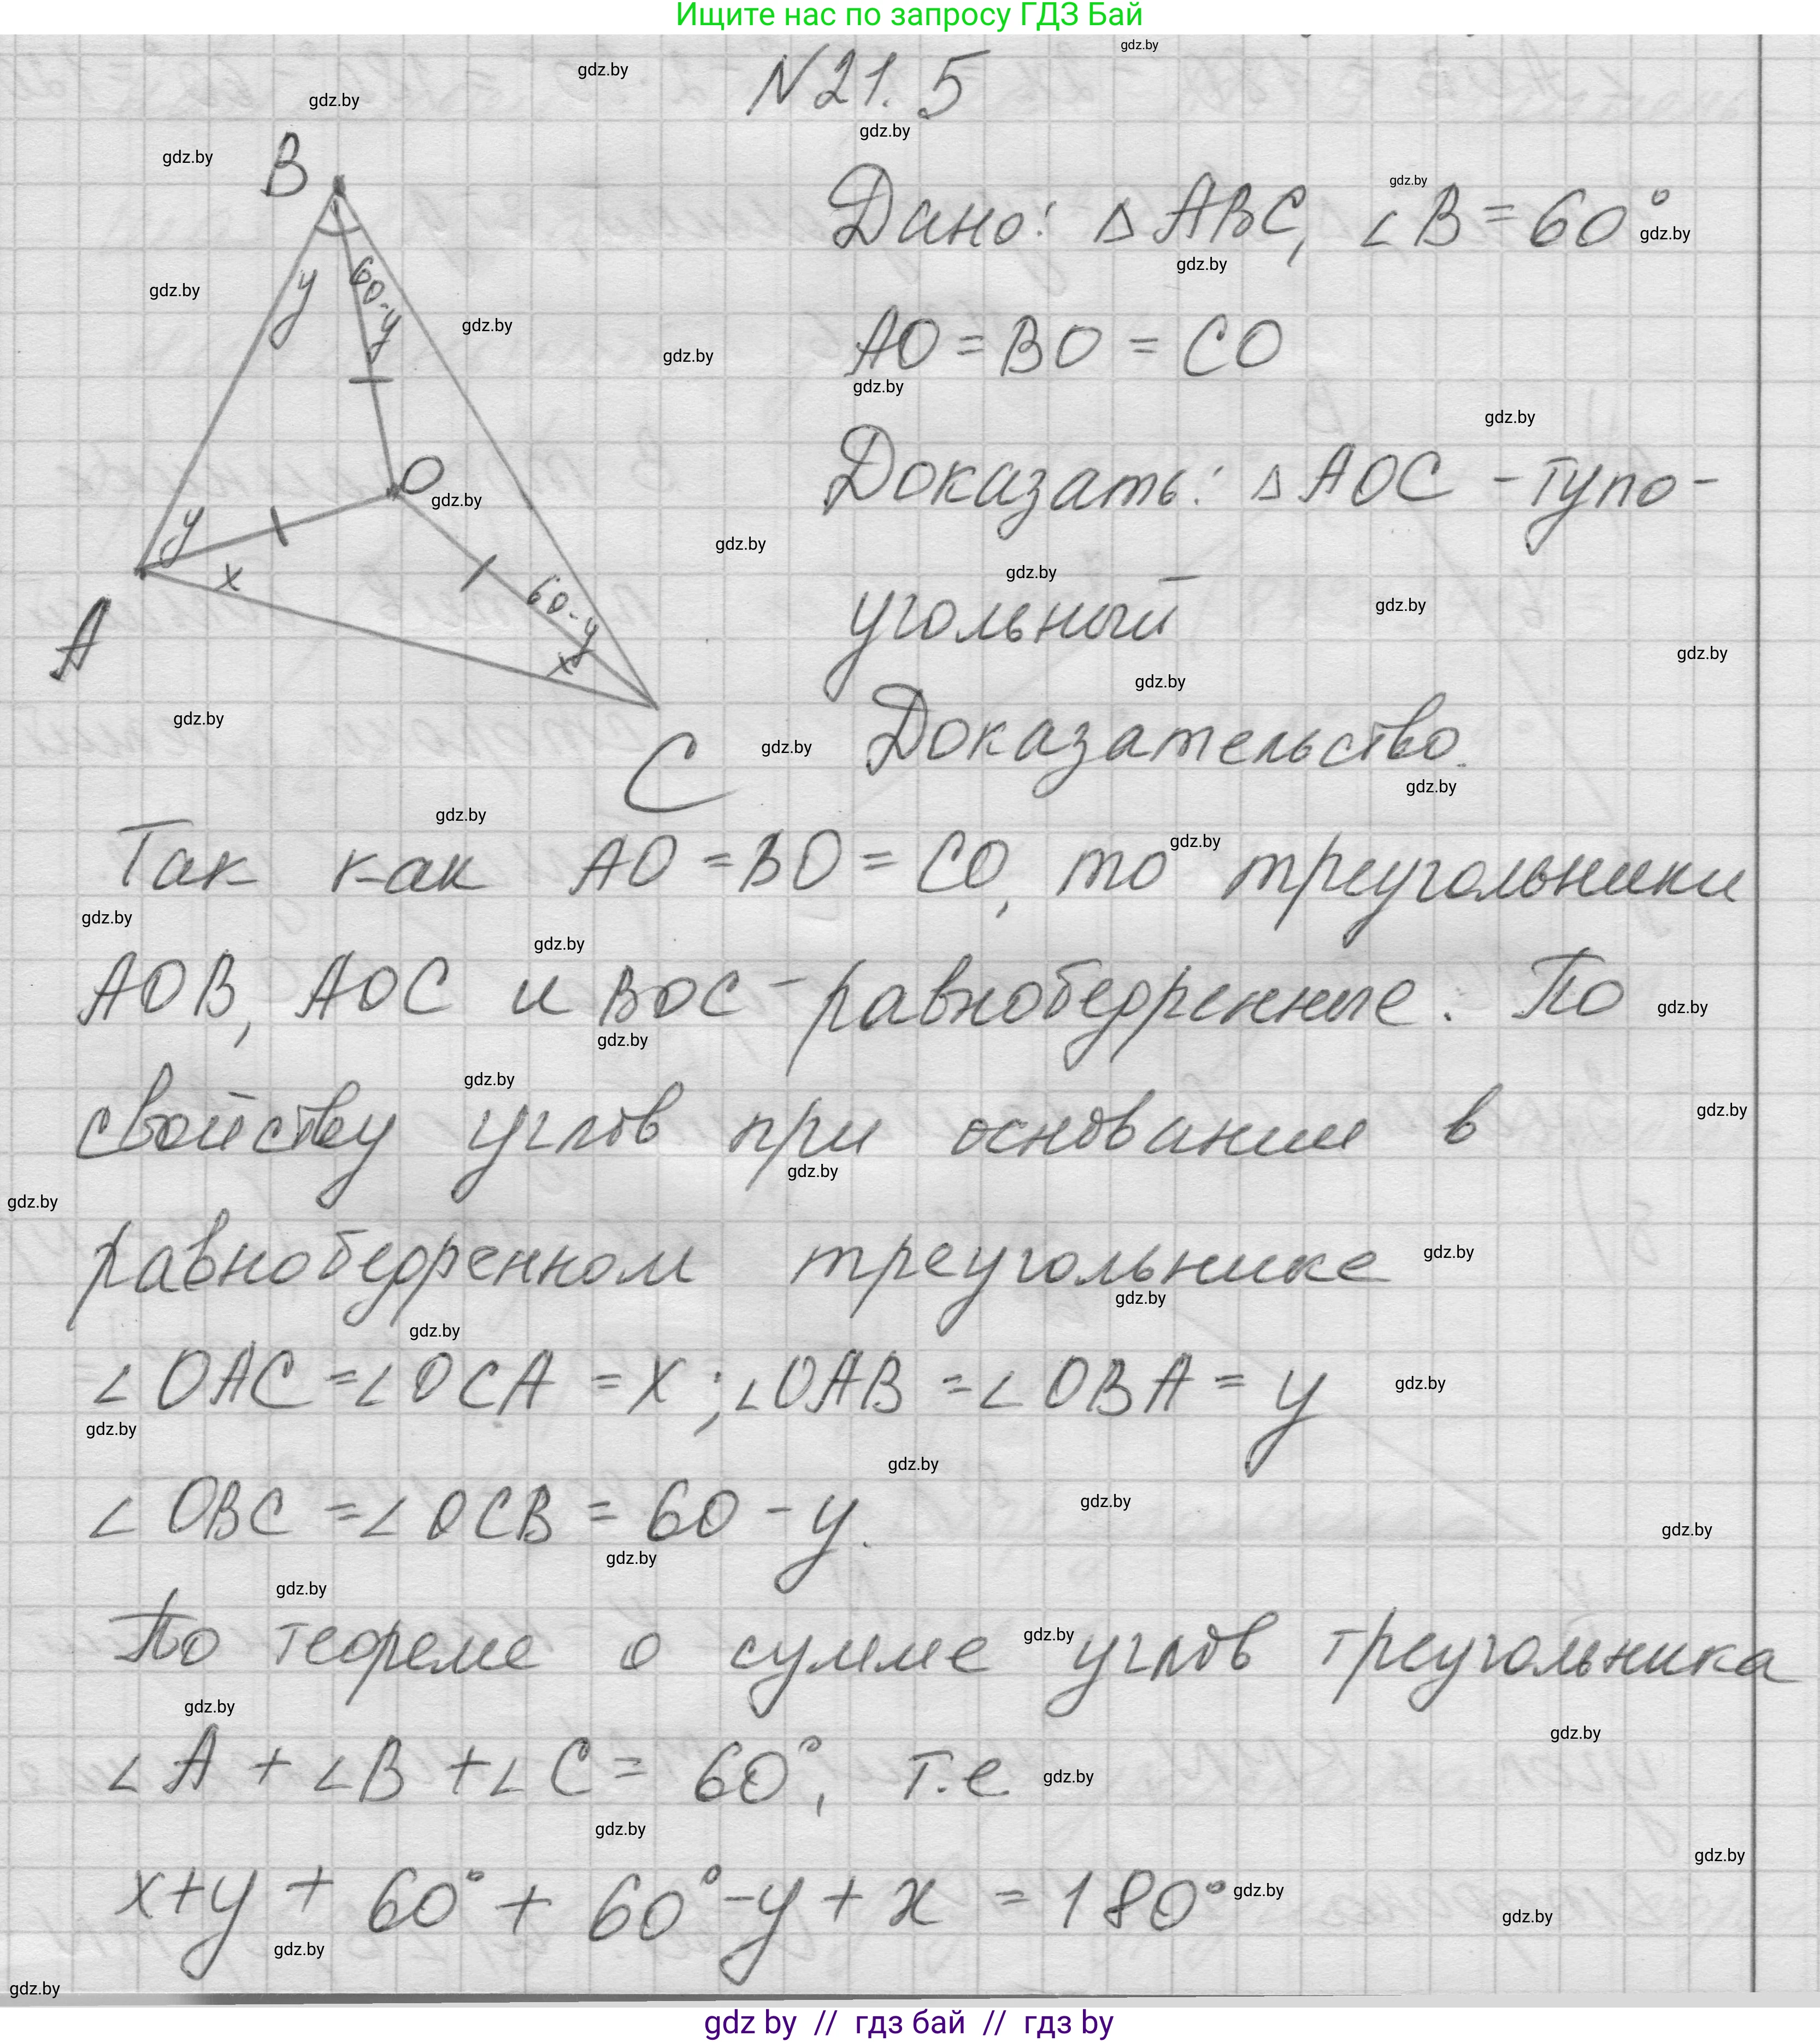 Ищите нас по запросу ГДЗ Бай
N 21. 5
B
y
60-y
O
y
x
60-y
x
A
C
Дано: △ ABC, ∠ B = 60°
AO = BO = CO
Доказать: △ AOC - тупо-
угольный
Доказательство.
Так как AO = BO = CO, то треугольники
AOB, AOC и BOC - равнобедренные. По
свойству углов при основании в
равнобедренном треугольнике
∠ OAC = ∠ OCA = x ; ∠ OAB = ∠ OBA = y
∠ OBC = ∠ OCB = 60 - y.
По теореме о сумме углов треугольника
∠ A + ∠ B + ∠ C = 60°, т.е
x + y + 60° + 60° - y + x = 180°
gdz.by
gdz by // гдз бай // гдз by